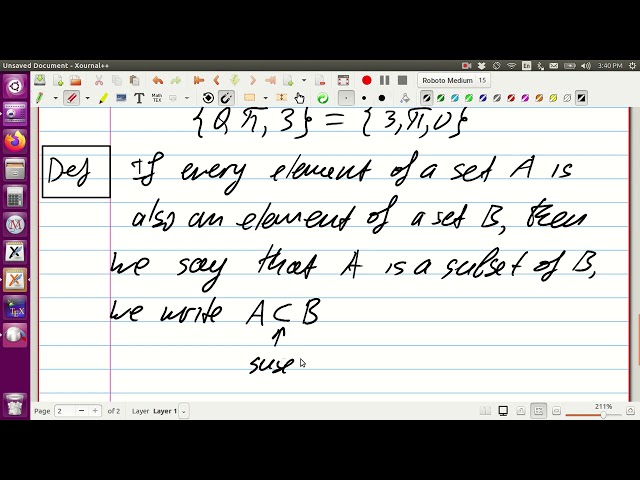 Unsaved Document - Xournal++
En
3:40 PM
Roboto Medium 15
MATH TEX
{0, π, 3} = {3, π, 0}
Def If every element of a set A is
also an element of a set B, then
we say that A is a subset of B,
we write A ⊂ B
↑
suse
Page 2 of 2 Layer Layer 1 211%